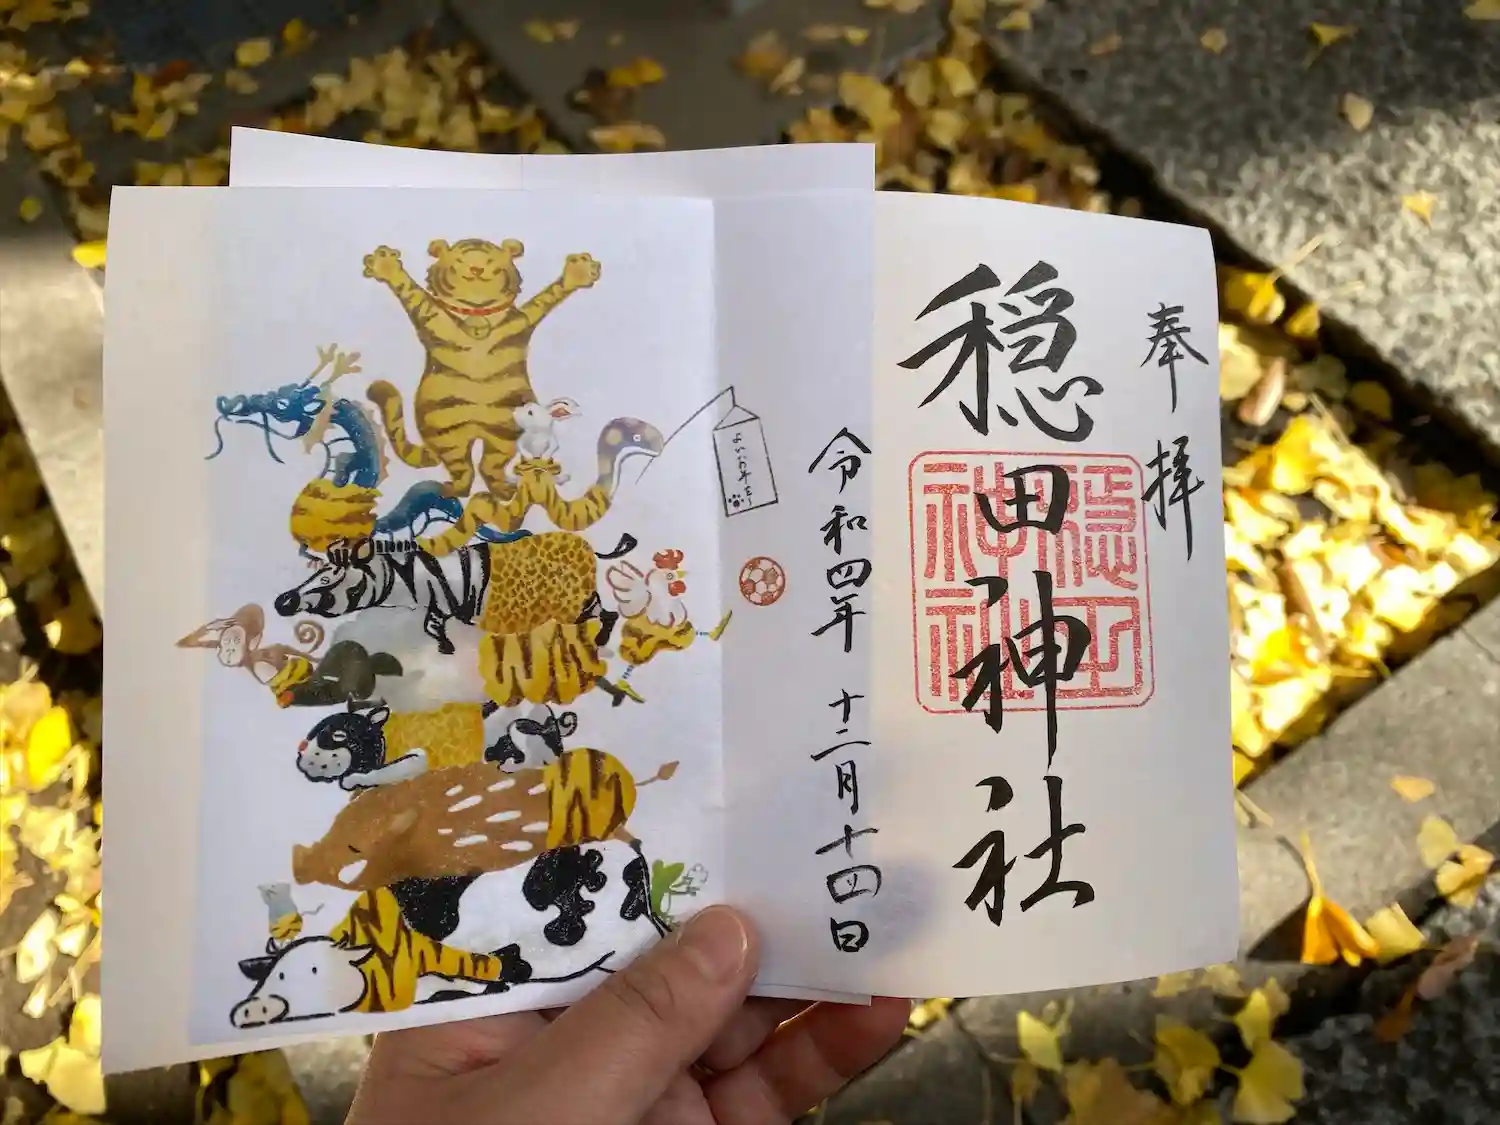 奉拝
穏田神社
穏田
神社
令和四年 十二月十四日
よいお年を!